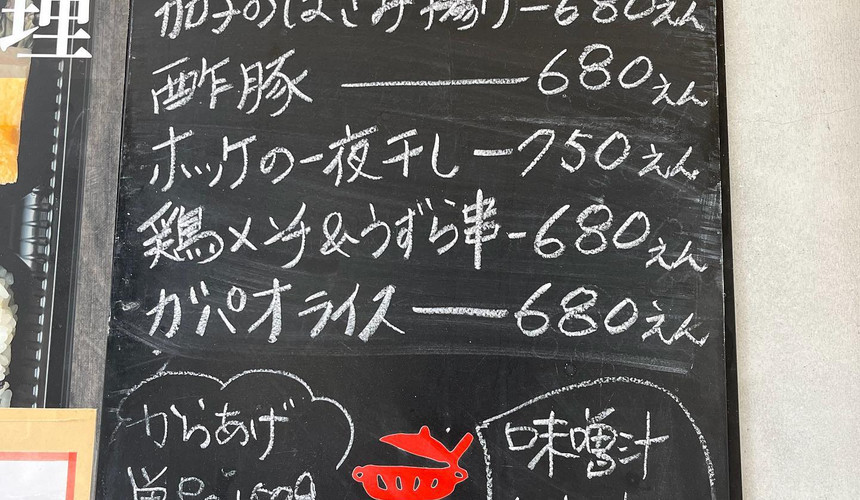 理
茄子のはさみ揚げー680えん
酢豚 ー 680えん
ホッケの一夜干しー750えん
鶏メンチ&うずら串-680えん
ガパオライスー680えん
からあげ
味噌汁